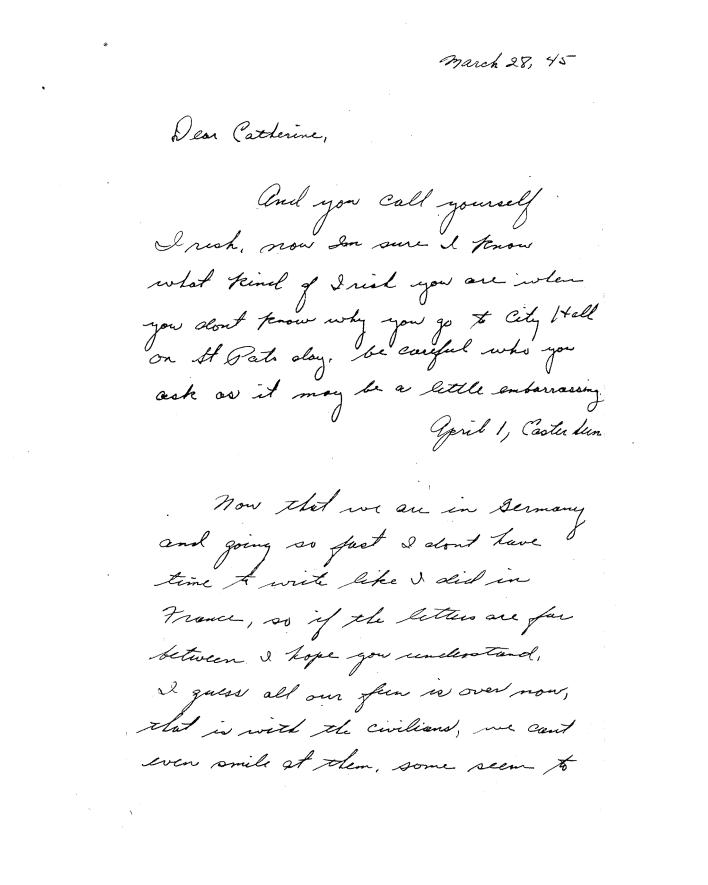 March 28, 45
Dear Catherine,
And you call yourself
Irish, now Im sure I know
what kind of Irish you are when
you dont know why you go to City Hall
on St Pats day. be careful who you
ask as it may be a little embarrassing.
April 1, Easter Sun
Now that we are in Germany
and going so fast I dont have
time to write like I did in
France, so if the letters are far
between I hope you understand.
I guess all our fun is over now,
that is with the civilians, we cant
even smile at them. some seem to